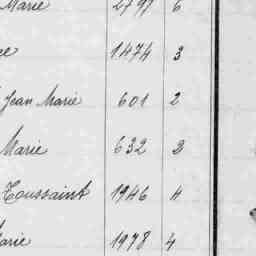 Marie 2797 6
ce 1474 3
Jean Marie 601 2
Marie 632 3
Toussaint 1946 4
Marie 1978 4